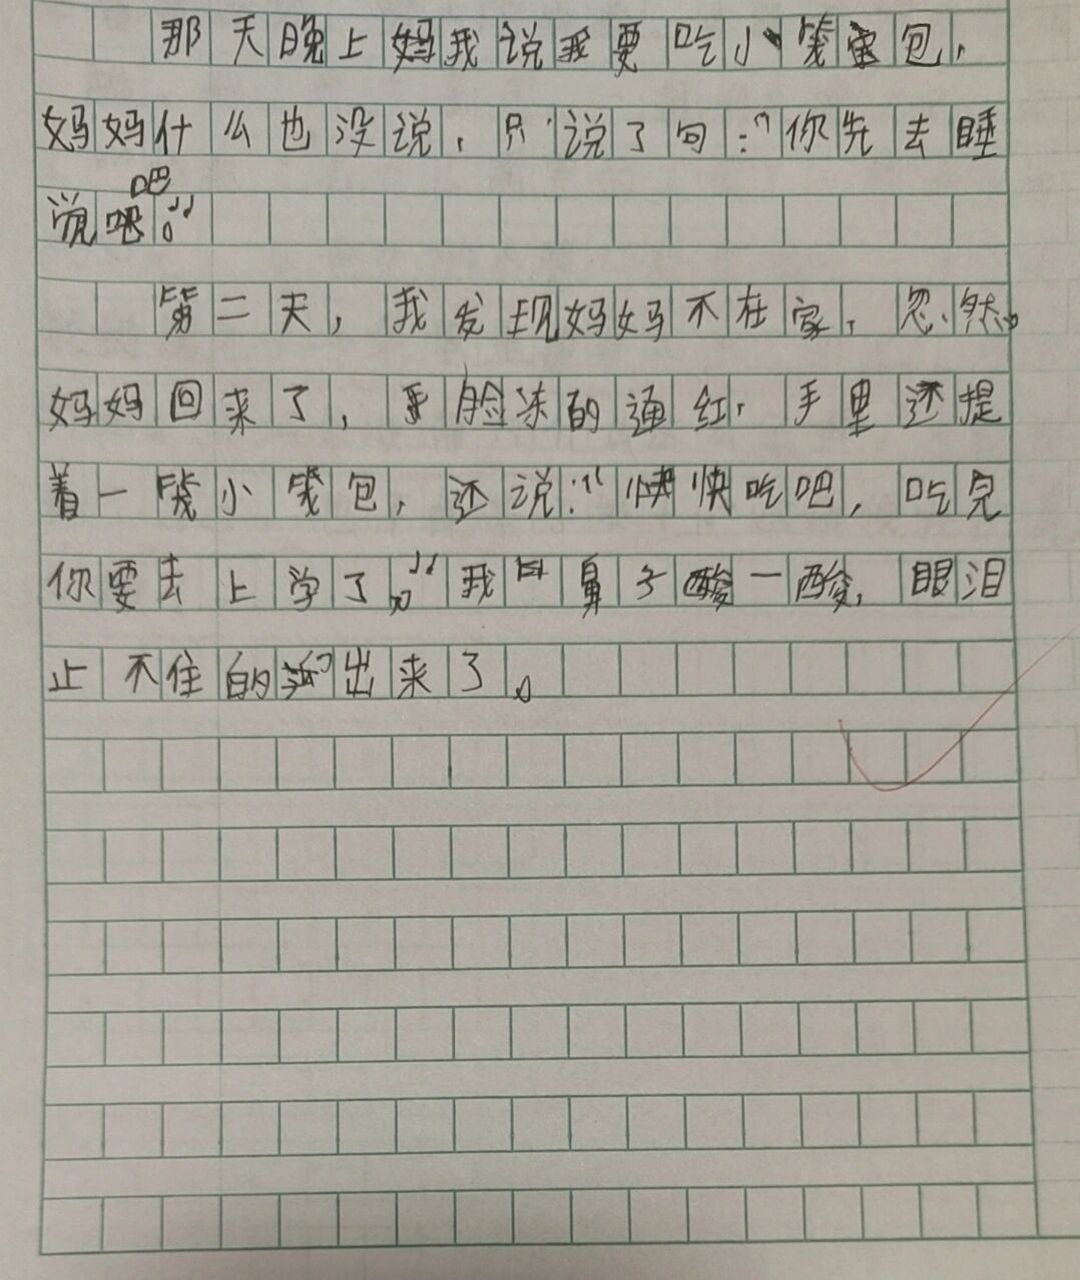 那天晚上我说我要吃小笼包，
妈妈什么也没说，只说了句：“你先去睡
觉吧。”
第二天，我发现妈妈不在家，忽然。
妈妈回来了，脸冻的通红，手里还提
着一笼小笼包，还说：“快快吃吧，吃完
你要去上学了。”我鼻子酸一酸，眼泪
止不住的流出来了。